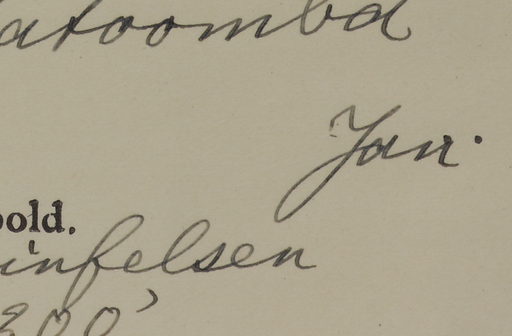 atoomba
Jan.
bold.
infelsen
800'